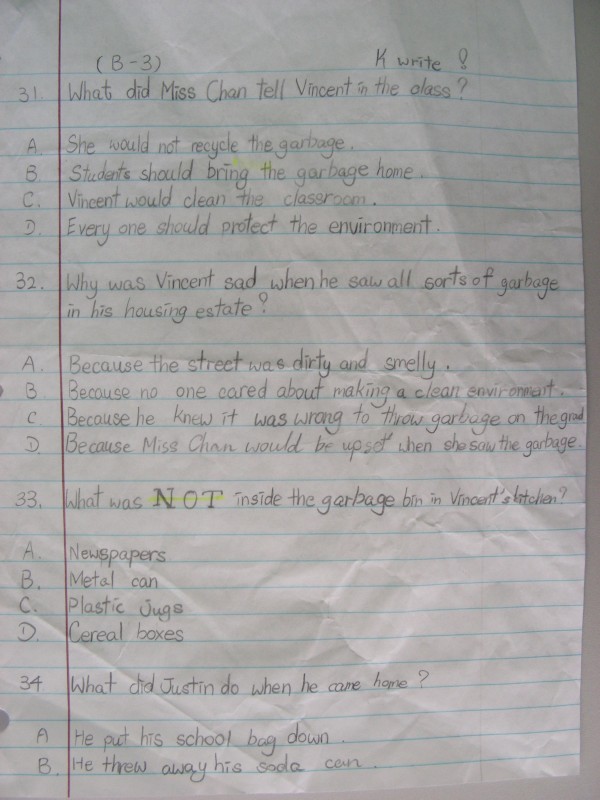 (B-3) K write !
31. What did Miss Chan tell Vincent in the class?
A. She would not recycle the garbage.
B Students should bring the garbage home.
C. Vincent would clean the classroom.
D. Every one should protect the environment.
32. Why was Vincent sad when he saw all sorts of garbage
in his housing estate?
A. Because the street was dirty and smelly.
B Because no one cared about making a clean environment.
C Because he knew it was wrong to throw garbage on the
D Because Miss Chan would be upset when she saw the garbage.
33. What was NOT inside the garbage bin in Vincent's kitchen?
A. Newspapers
B. Metal can
C. Plastic Jugs
D. Cereal boxes
34 What did Justin do when he came home?
A He put his school bag down.
B. He threw away his soda can.